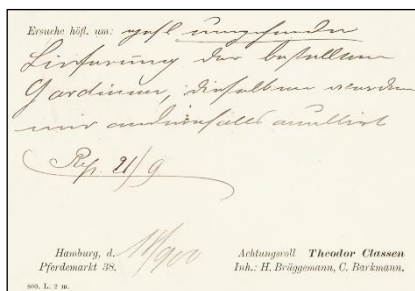 Ersuche höfl. um: gefl umgehende
Lieferung der bestellten
Gardinen, dieselben werden
mir andernfalls anullirt
21/9
Hamburg, d.
Achtungsvoll Theodor Classen
Pferdemarkt 38.
Inh.: H. Brüggemann, C. Barkmann.
800. L. 2 m.